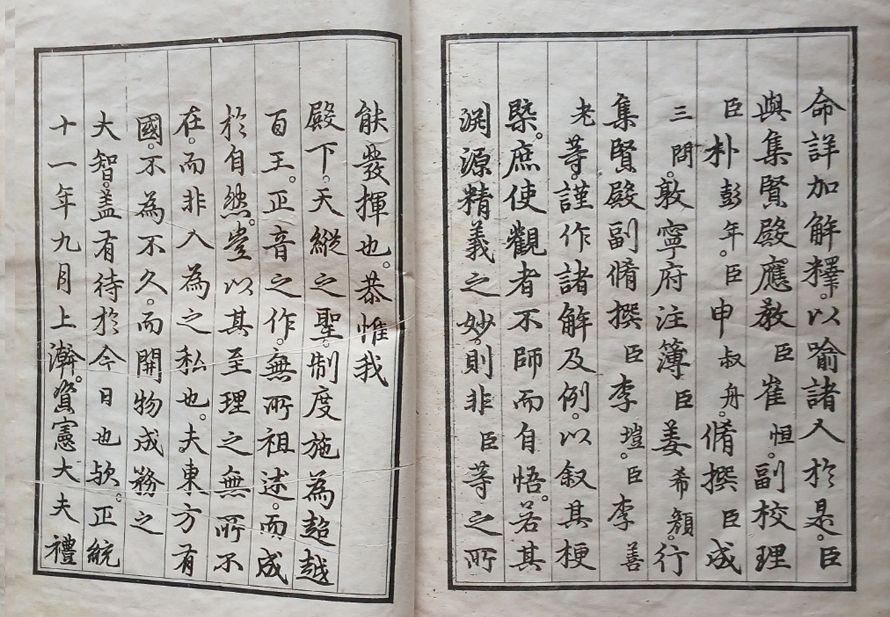 命詳加解釋。以喩諸人於是。臣
與集賢殿應敎臣崔恒。副校理
臣朴彭年。臣申叔舟。脩撰臣成
三問。敦寧府注簿臣姜希顏。行
集賢殿副脩撰臣李塏。臣李善
老等。謹作諸解及例。以叙其梗
槩。庶使觀者不師而自悟。若其
渕源精義之妙。則非臣等之所
能發揮也。恭惟我
殿下。天縱之聖。制度施為超越
百王。正音之作。無所祖述。而成
於自然。豈以其至理之無所不
在。而非人為之私也。夫東方有
國。不為不久。而開物成務之
大智。盖有待於今日也欤。正統
十一年九月上澣。資憲大夫禮